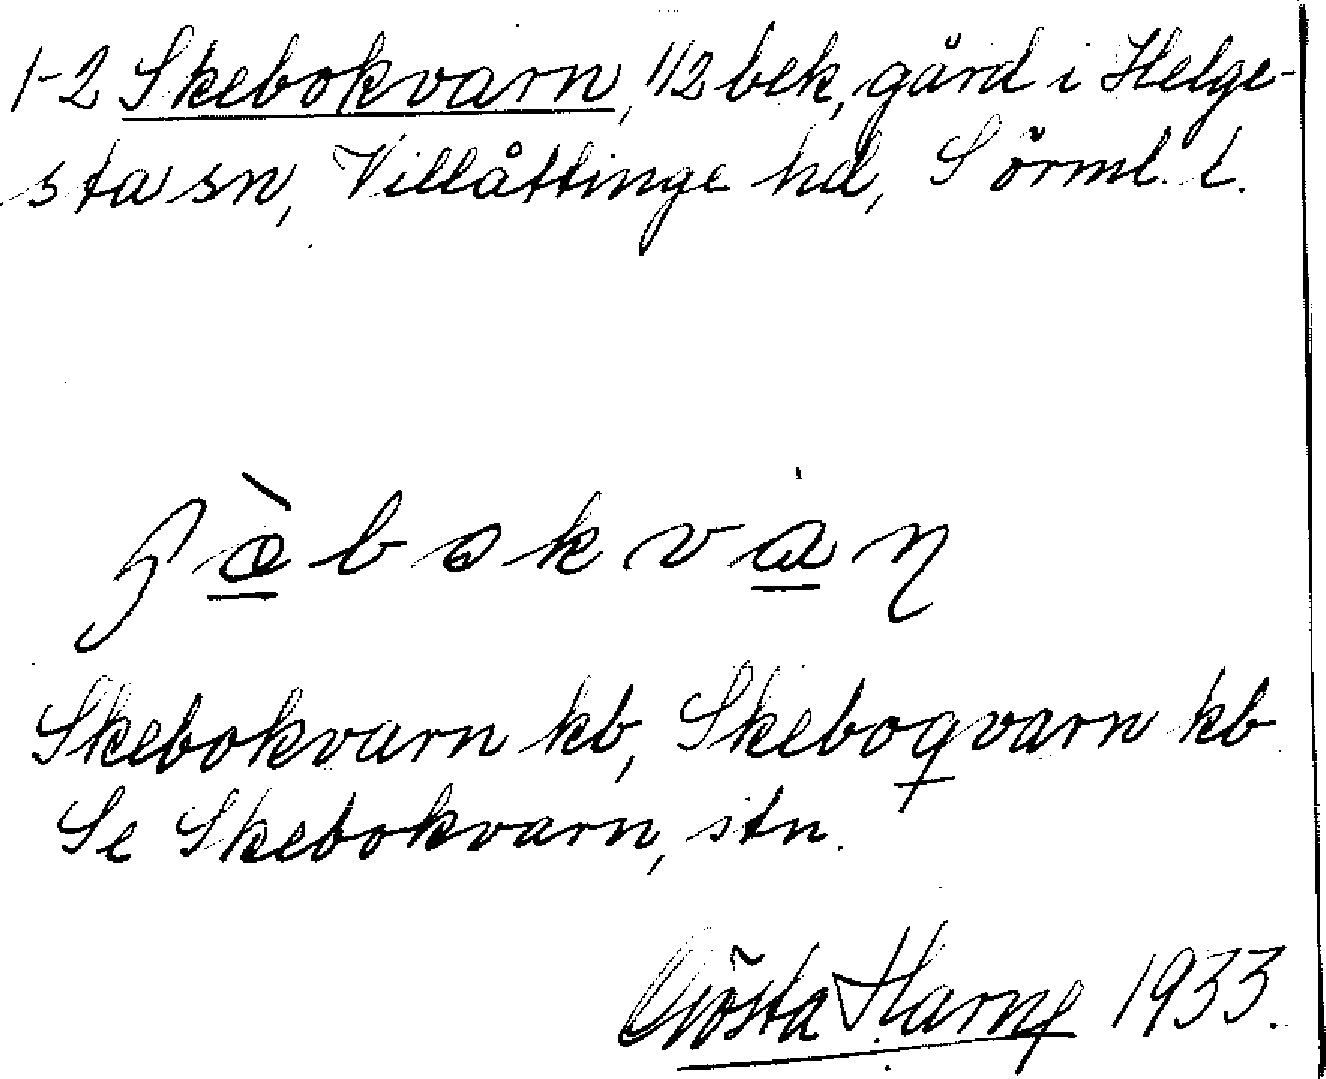 1-2 Skebokvarn, 1/2 bek, gård i Helge-
sta sn, Villåttinge hd, Sörml. l.
Skebokvarn kb, Skeboqvarn kb
Se Skebokvarn, stn.
Gösta Harng 1933.